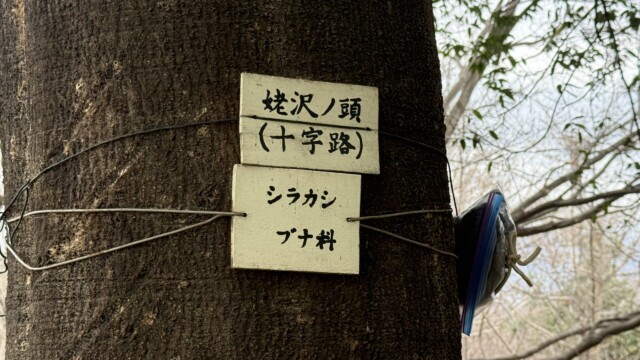 姥沢ノ頭
(十字路)
シラカシ
ブナ料